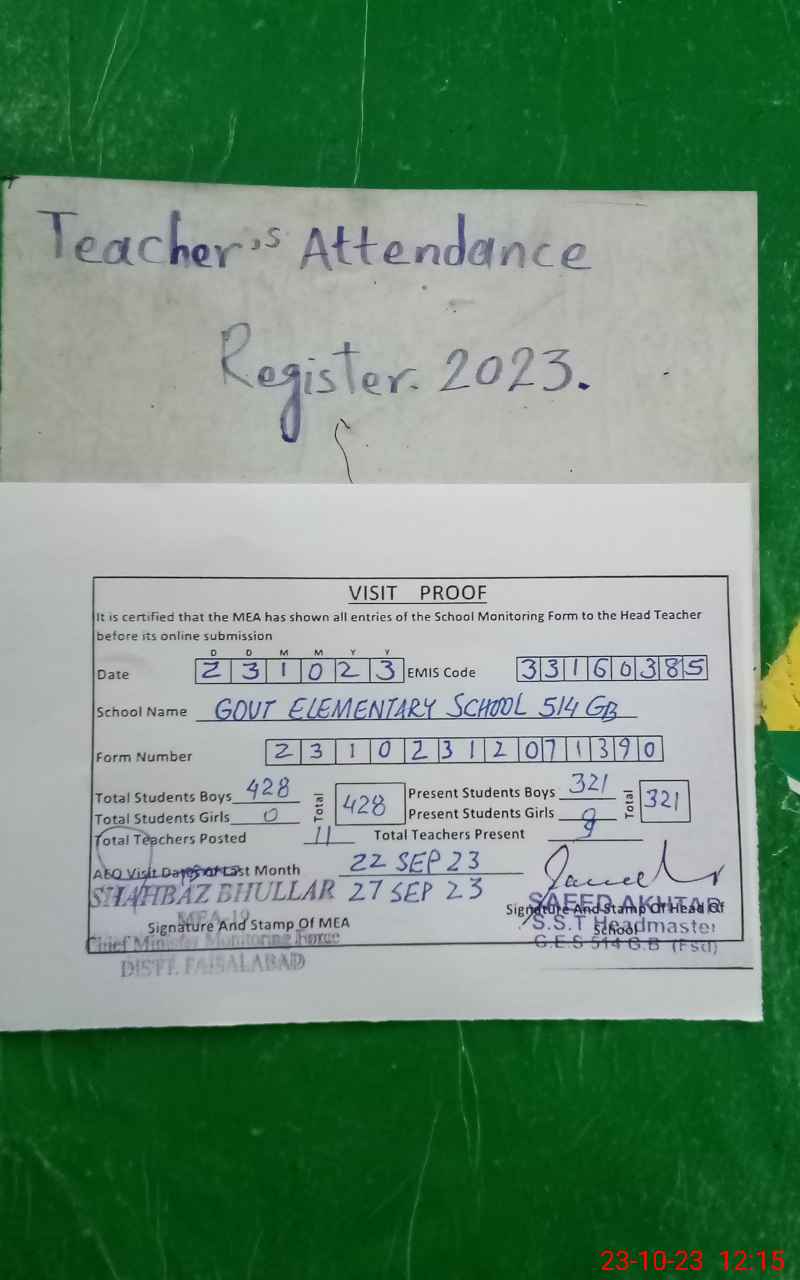 Teacher's Attendance
Register. 2023.
VISIT PROOF
It is certified that the MEA has shown all entries of the School Monitoring Form to the Head Teacher
before its online submission
D D M M Y Y
Date 2 3 1 0 2 3 EMIS Code 3 3 1 6 0 3 8 5
School Name GOVT ELEMENTARY SCHOOL 514 GB
Form Number 2 3 1 0 2 3 1 2 0 7 1 3 9 0
Total Students Boys 428 Total 428 Present Students Boys 321 Total 321
Total Students Girls 0 Present Students Girls
Total Teachers Posted 11 Total Teachers Present 9
AEO Visit Dates of Last Month 22 SEP 23
SHAHBAZ BHULLAR 27 SEP 23
MEA-19
Signature And Stamp Of MEA
Chief Minister Monitoring Force
DISTT. FAISALABAD
SAEED AKHTAR
Signature And Stamp Of Head Of
School
S.S.T Headmaster
G.E.S 514 G.B (Fsd)
23-10-23 12:15